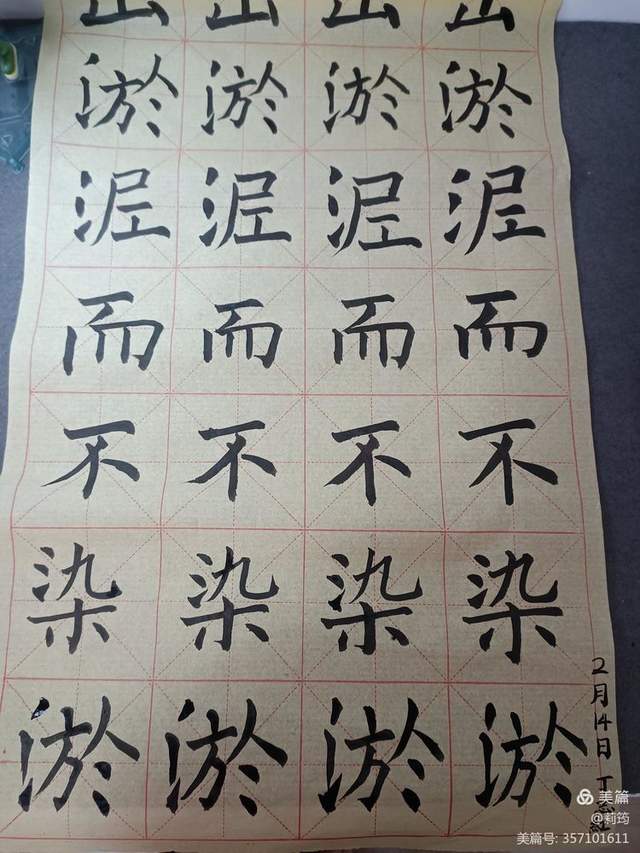 出 出 出 出
淤 淤 淤 淤
泥 泥 泥 泥
而 而 而 而
不 不 不 不
染 染 染 染
淤 淤 淤 淤
2月14日 丁
美篇
@莉筠
美篇号: 357101611